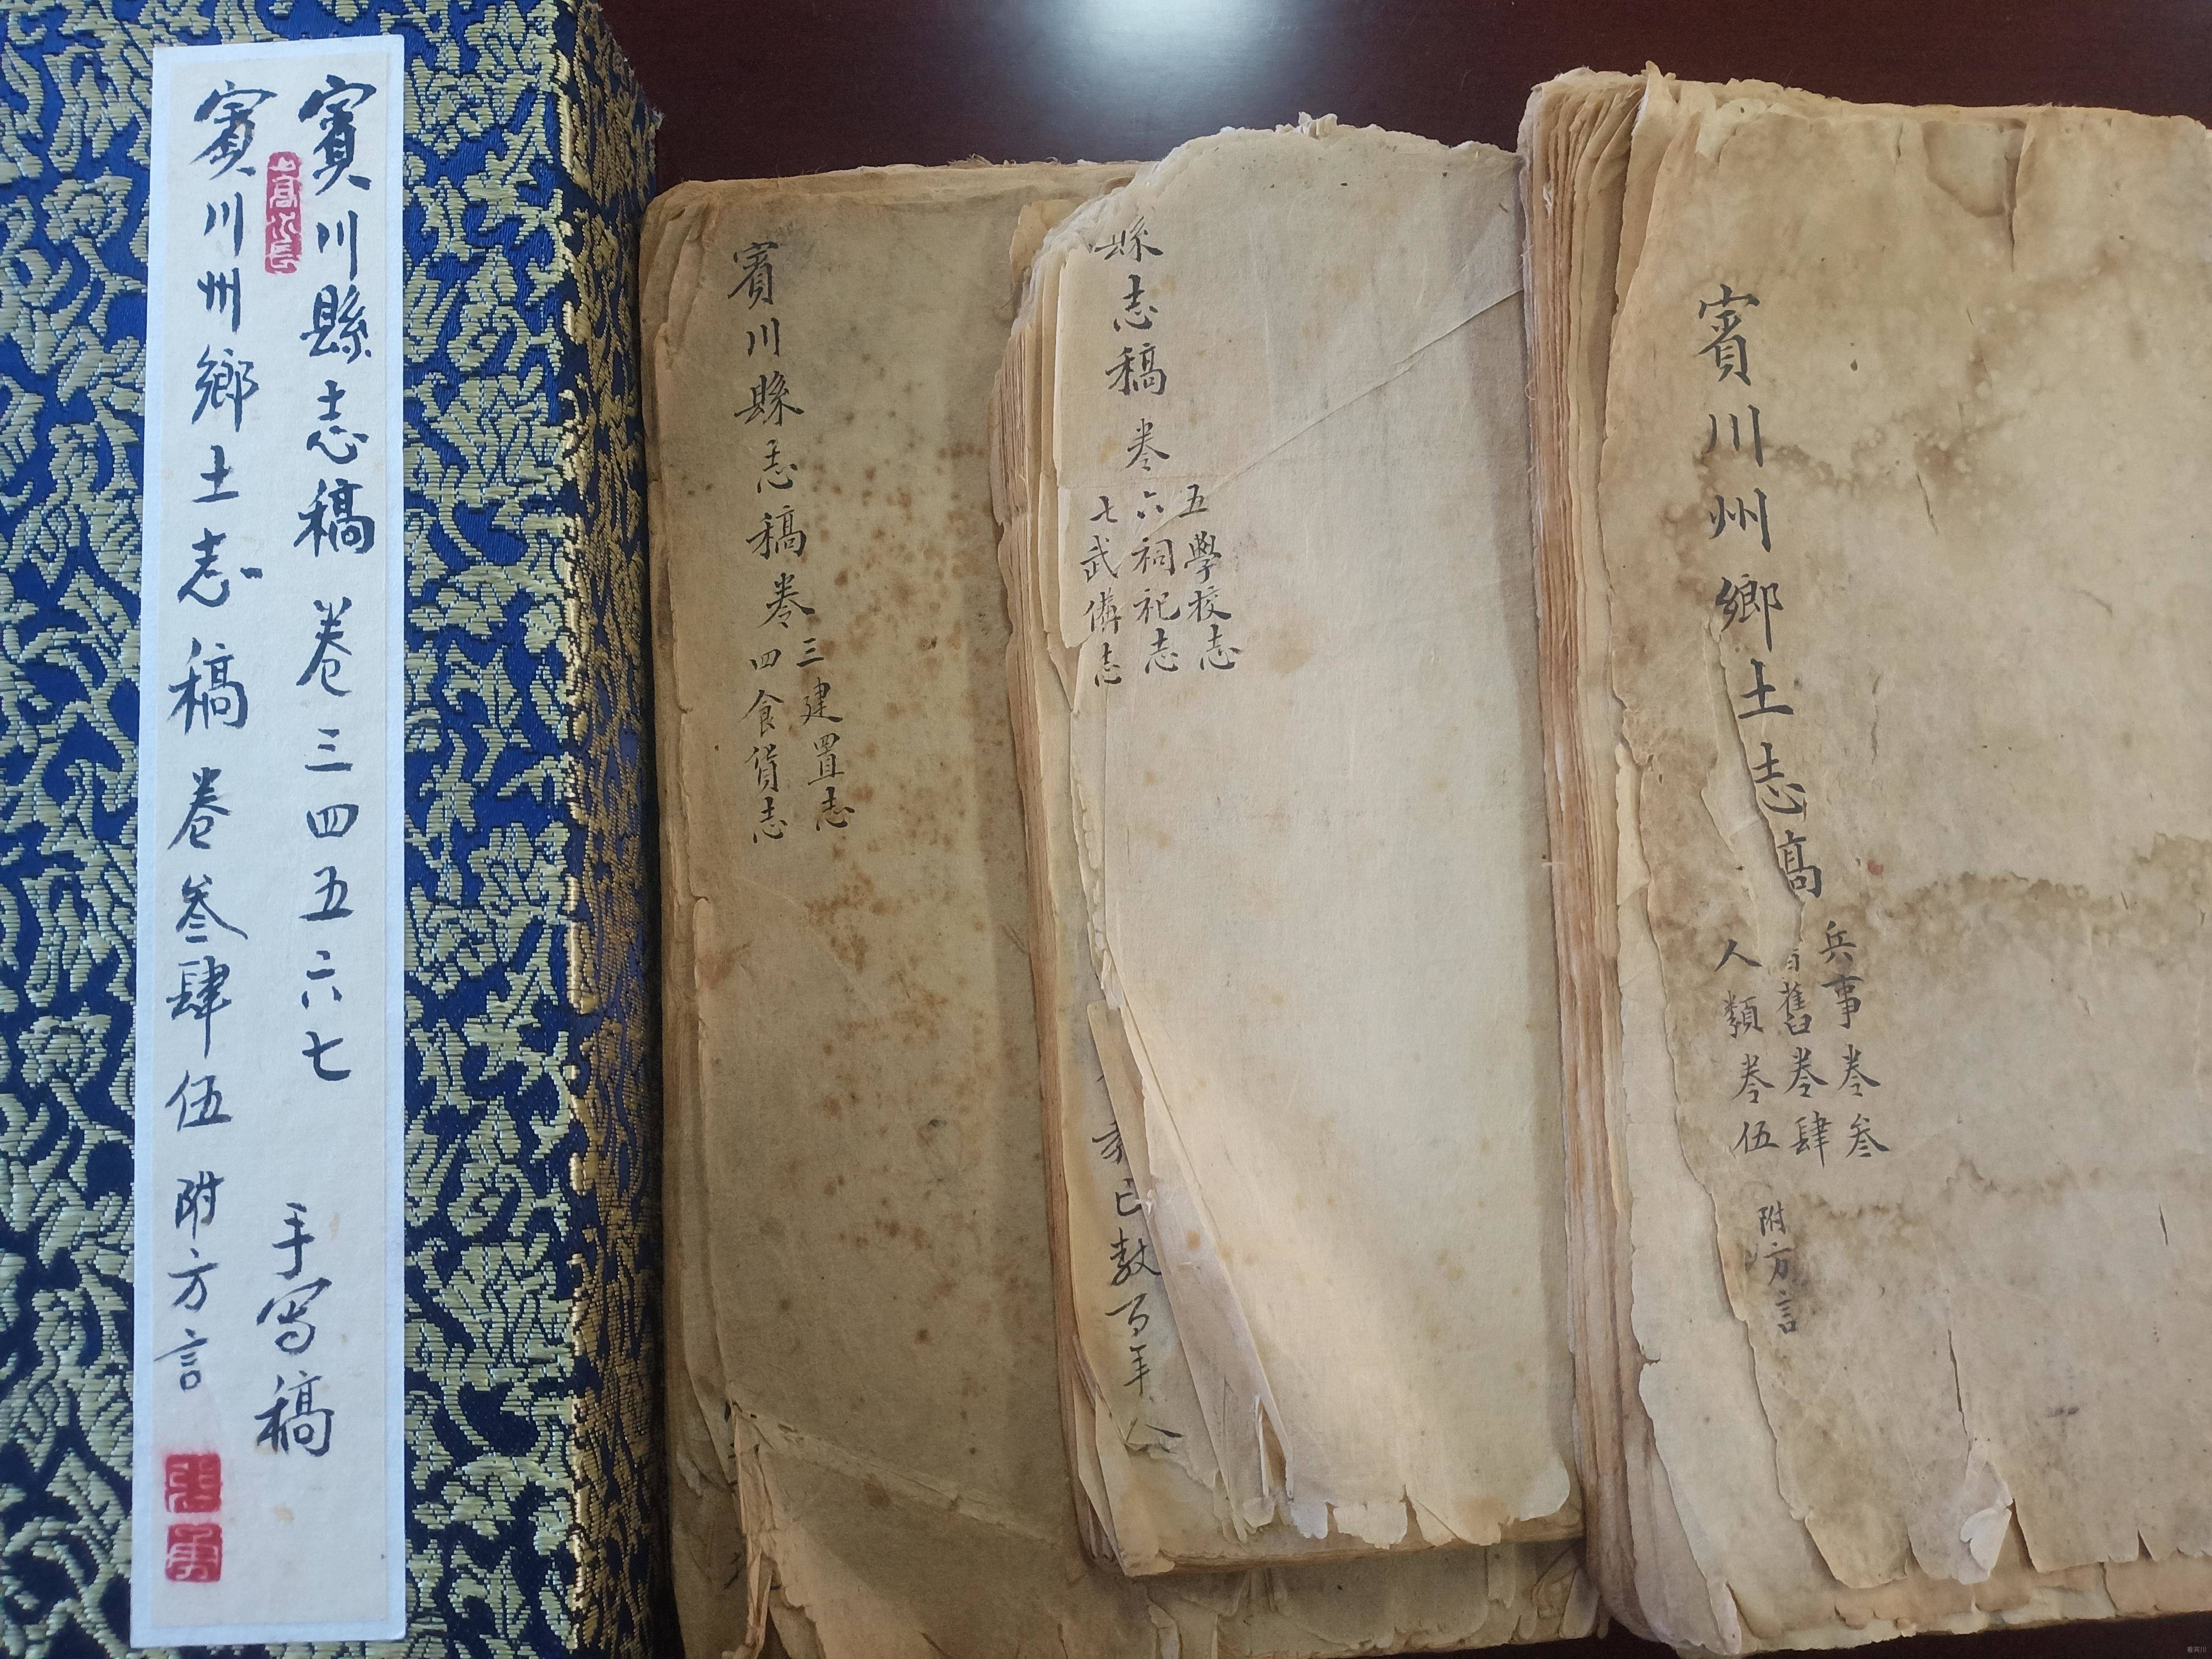 賓川縣志稿 卷三四五六七 手写稿
賓川州鄉土志稿 卷叁肆伍 附方言
賓川縣志稿卷
三建置志
四食貨志
縣志稿卷
五學校志
六祠祀志
七武僃志
已数百年
賓川州鄉土志高
兵事卷叁
舊卷肆
人類卷伍
附方言
看宾川